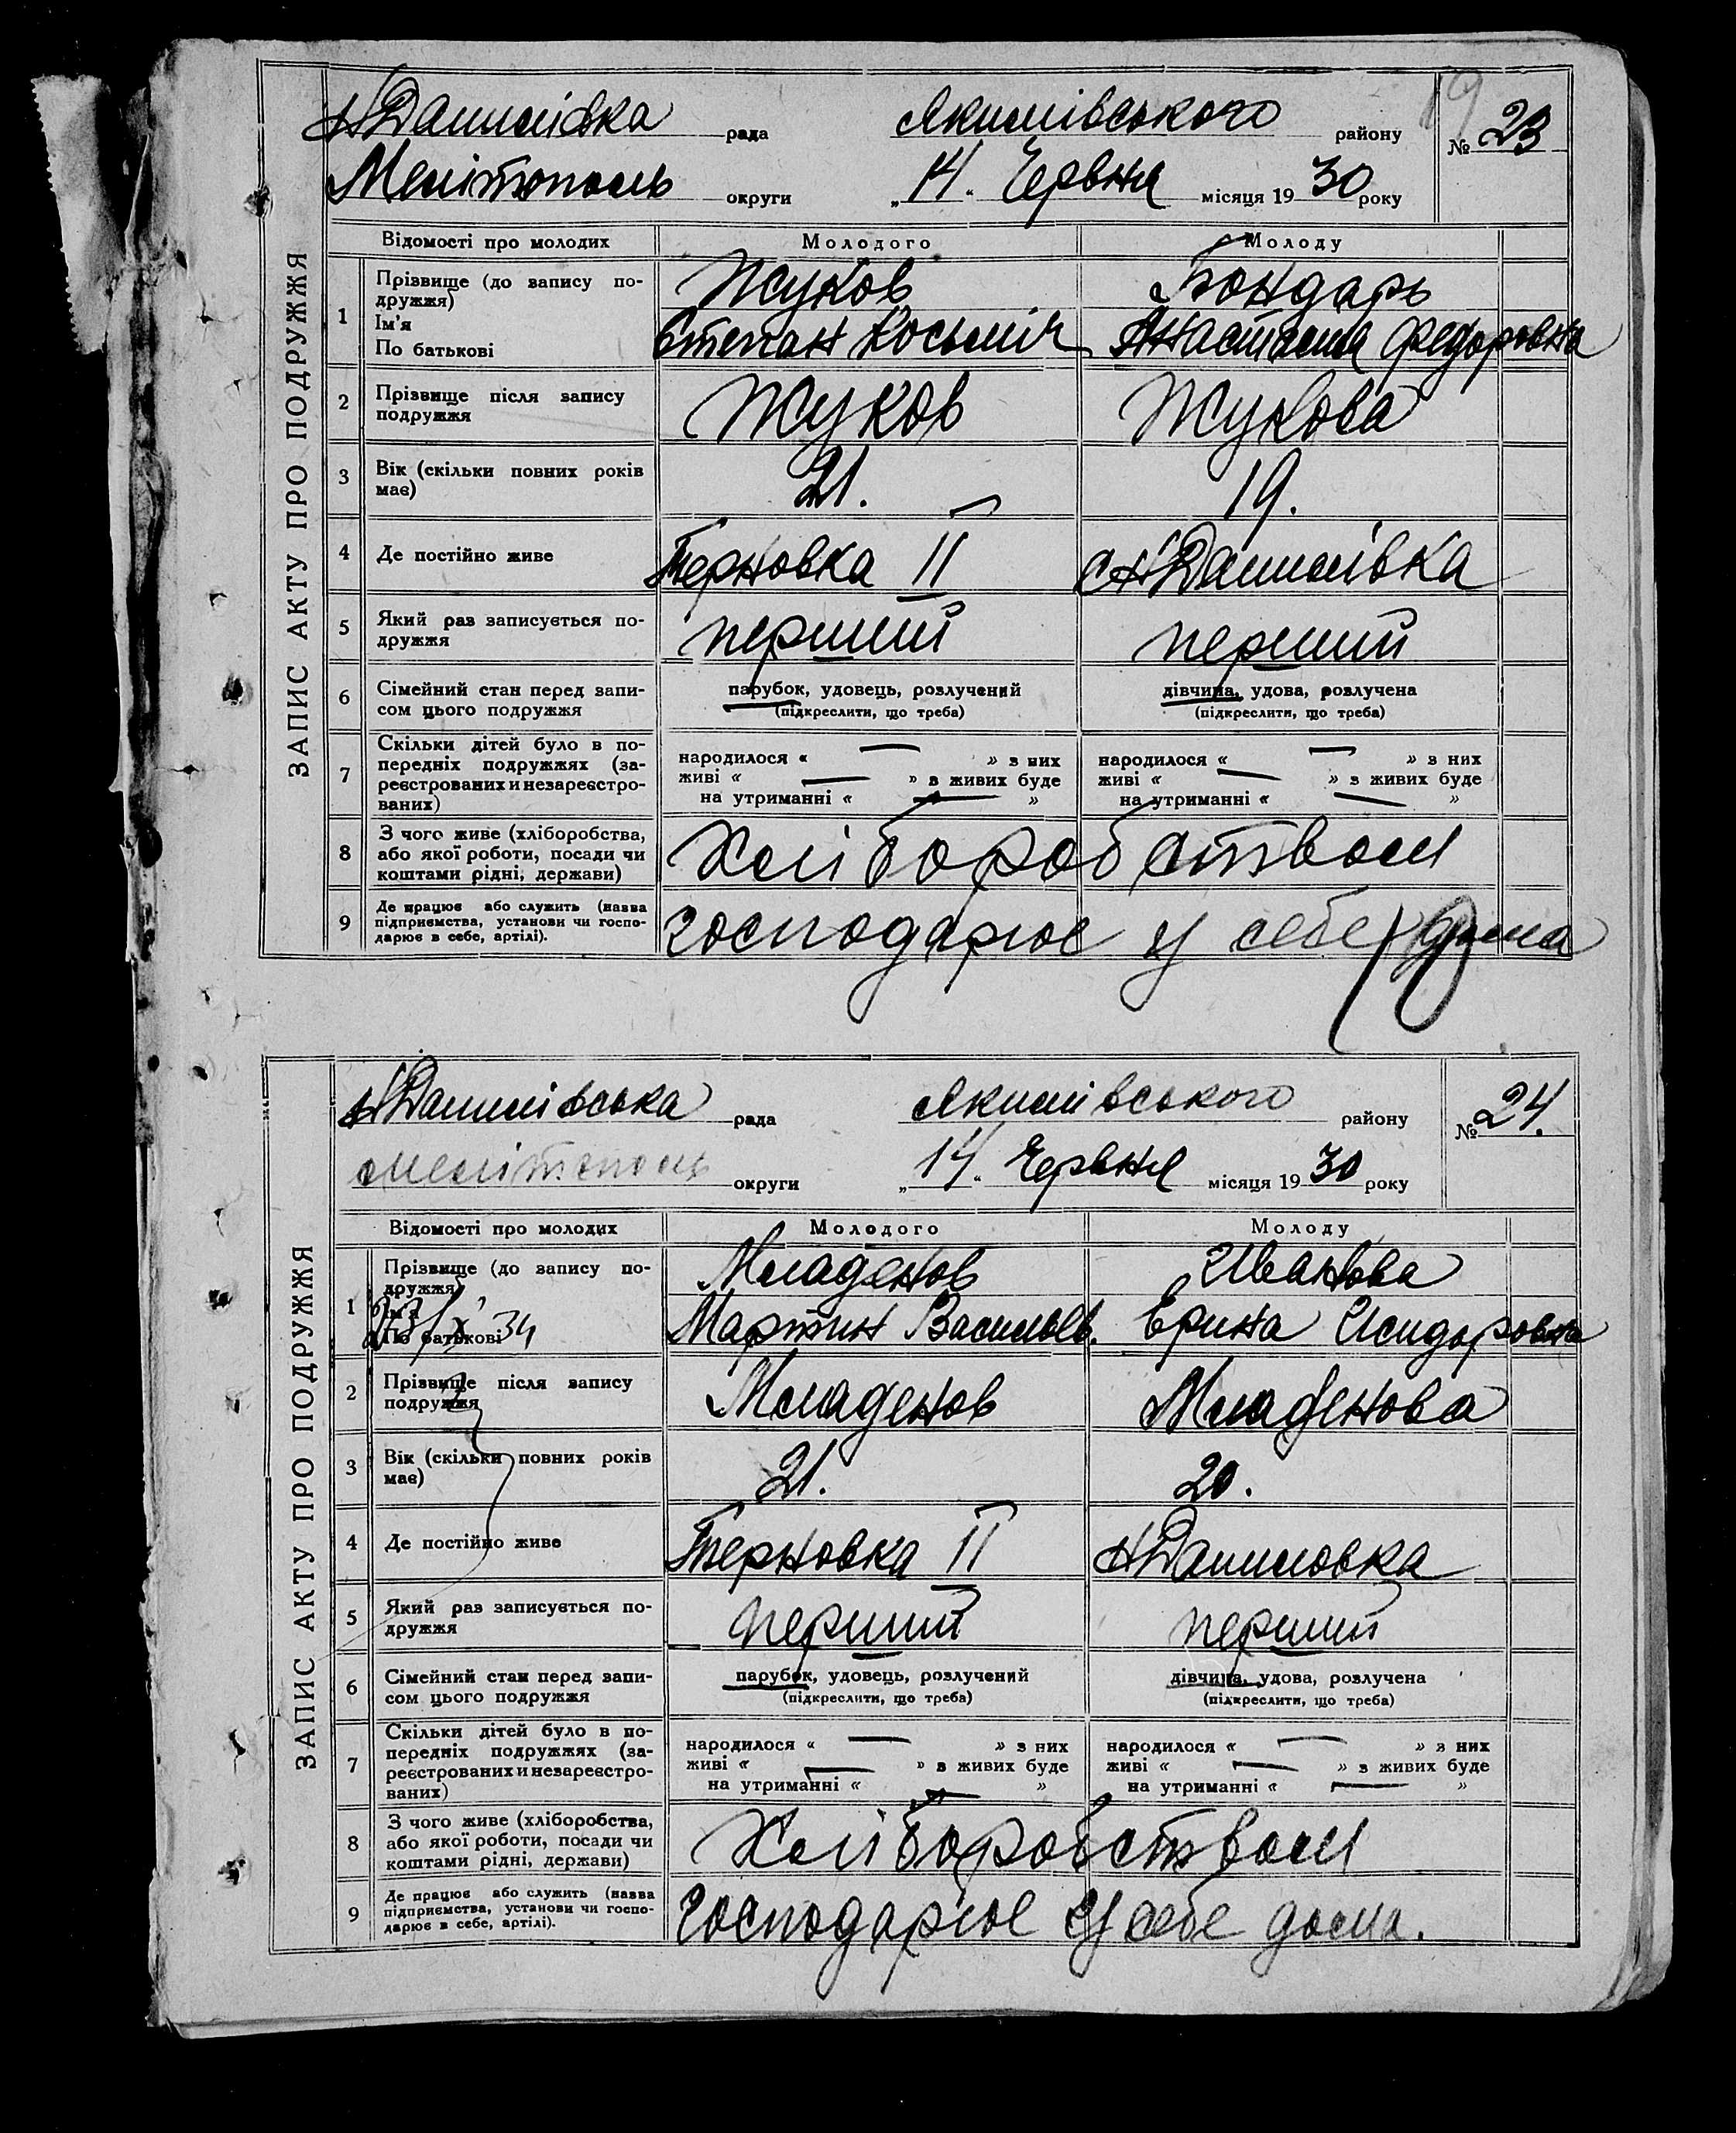 19
Н Данилівка рада Якимівського району № 23
Мелітополь округи „14“ Червня місяця 1930 року
ЗАПИС АКТУ ПРО ПОДРУЖЖЯ
Відомості про молодих Молодого Молоду
1 Прізвище (до запису по-
дружжя) Жуков Бондарь
Ім'я
По батькові Степан Косьмич Анастасия Федоровна
2 Прізвище після запису
подружжя Жуков Жукова
3 Вік (скільки повних років
має) 21. 19.
4 Де постійно живе Терновка II Н Данилівка
5 Який раз записується по-
дружжя перший перший
6 Сімейний стан перед запи-
сом цього подружжя
парубок, удовець, розлучений дівчина, удова, розлучена
(підкреслити, що треба) (підкреслити, що треба)
7 Скільки дітей було в по-
передніх подружжях (за-
реєстрованих и незареєстро-
ваних)
народилося « — » з них народилося « — » з них
живі « — » в живих буде живі « — » з живих буде
на утриманні « — » на утриманні « — »
8 З чого живе (хліборобства,
або якої роботи, посади чи
коштами рідні, держави) Хліборобством
9 Де працює або служить (назва
підприємства, установи чи госпо-
дарює в себе, артілі). господарює у себе дома
Н Данилівська рада Якимівського району № 24.
Мелітополь округи „14“ Червня місяця 1930 року
ЗАПИС АКТУ ПРО ПОДРУЖЖЯ
Відомості про молодих Молодого Молоду
1 Прізвище (до запису по-
дружжя) Младенов Иванова
Ім'я
По батькові 34 Мартин Васильев. Ерина Исидоровна
2 Прізвище після запису
подружжя Младенов Младенова
3 Вік (скільки повних років
має) 21. 20.
4 Де постійно живе Терновка II Н Даниловка
5 Який раз записується по-
дружжя перший перший
6 Сімейний стан перед запи-
сом цього подружжя
парубок, удовець, розлучений дівчина, удова, розлучена
(підкреслити, що треба) (підкреслити, що треба)
7 Скільки дітей було в по-
передніх подружжях (за-
реєстрованих и незареєстро-
ваних)
народилося « — » з них народилося « — » з них
живі « — » в живих буде живі « — » з живих буде
на утриманні « — » на утриманні « — »
8 З чого живе (хліборобства,
або якої роботи, посади чи
коштами рідні, держави) Хліборобством
9 Де працює або служить (назва
підприємства, установи чи госпо-
дарює в себе, артілі). господарює у себе дома.